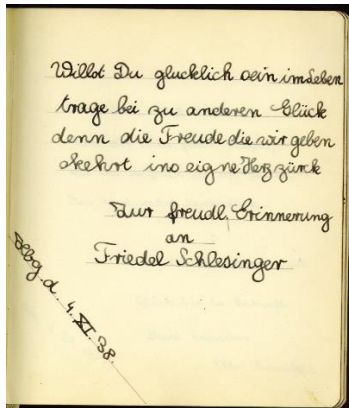 Willst Du glucklich sein im Leben
trage bei zu anderen Glück
denn die Freude die wir geben
skehrt ins eigne Herz zürck
Zur freudl. Erinnerung
an
Friedel Schlesinger
Hbg. d. 4. XI. 38.